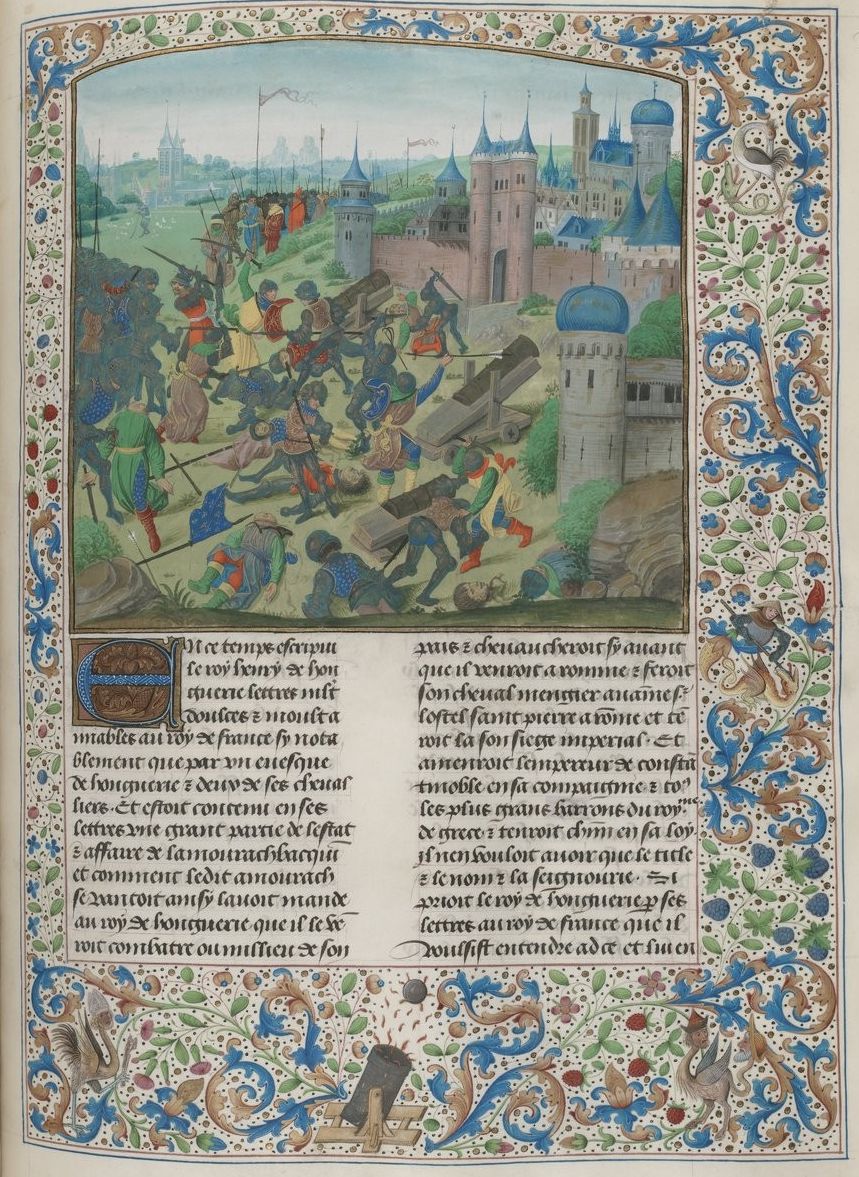 En ce temps escripui
le roy henry de hon
guerie lettres mlt
doulces & moult a
imables au roy de france sy nota
blement que par vn euesque
de honguerie & deux de ses cheual
liers. Et estoit contenu en ses
lettres vne grant partie de lestat
& affaire de lamourachbacqui
et comment ledit amourach
se vantoit ainsy lauoit mande
au roy de honguerie que il le ve
roit combatre ou millieu de son
pais & cheuaucheroit sy auant
que il venroit a romme & feroit
son cheual mengier auainne sr
lostel saint pierre a rome et te
roit la son siege imperial. Et
amenroit lempereur de consta
tinoble en sa compaignie & to9
les plus grans barrons du royme
de grece & tenroit chun en sa loy
Il nen vouloit auoir que le title
& le nom & la seignourie. Si
prioit le roy de honguerie p ses
lettres au roy de france que il
voulsist entendre ad ce et lui en